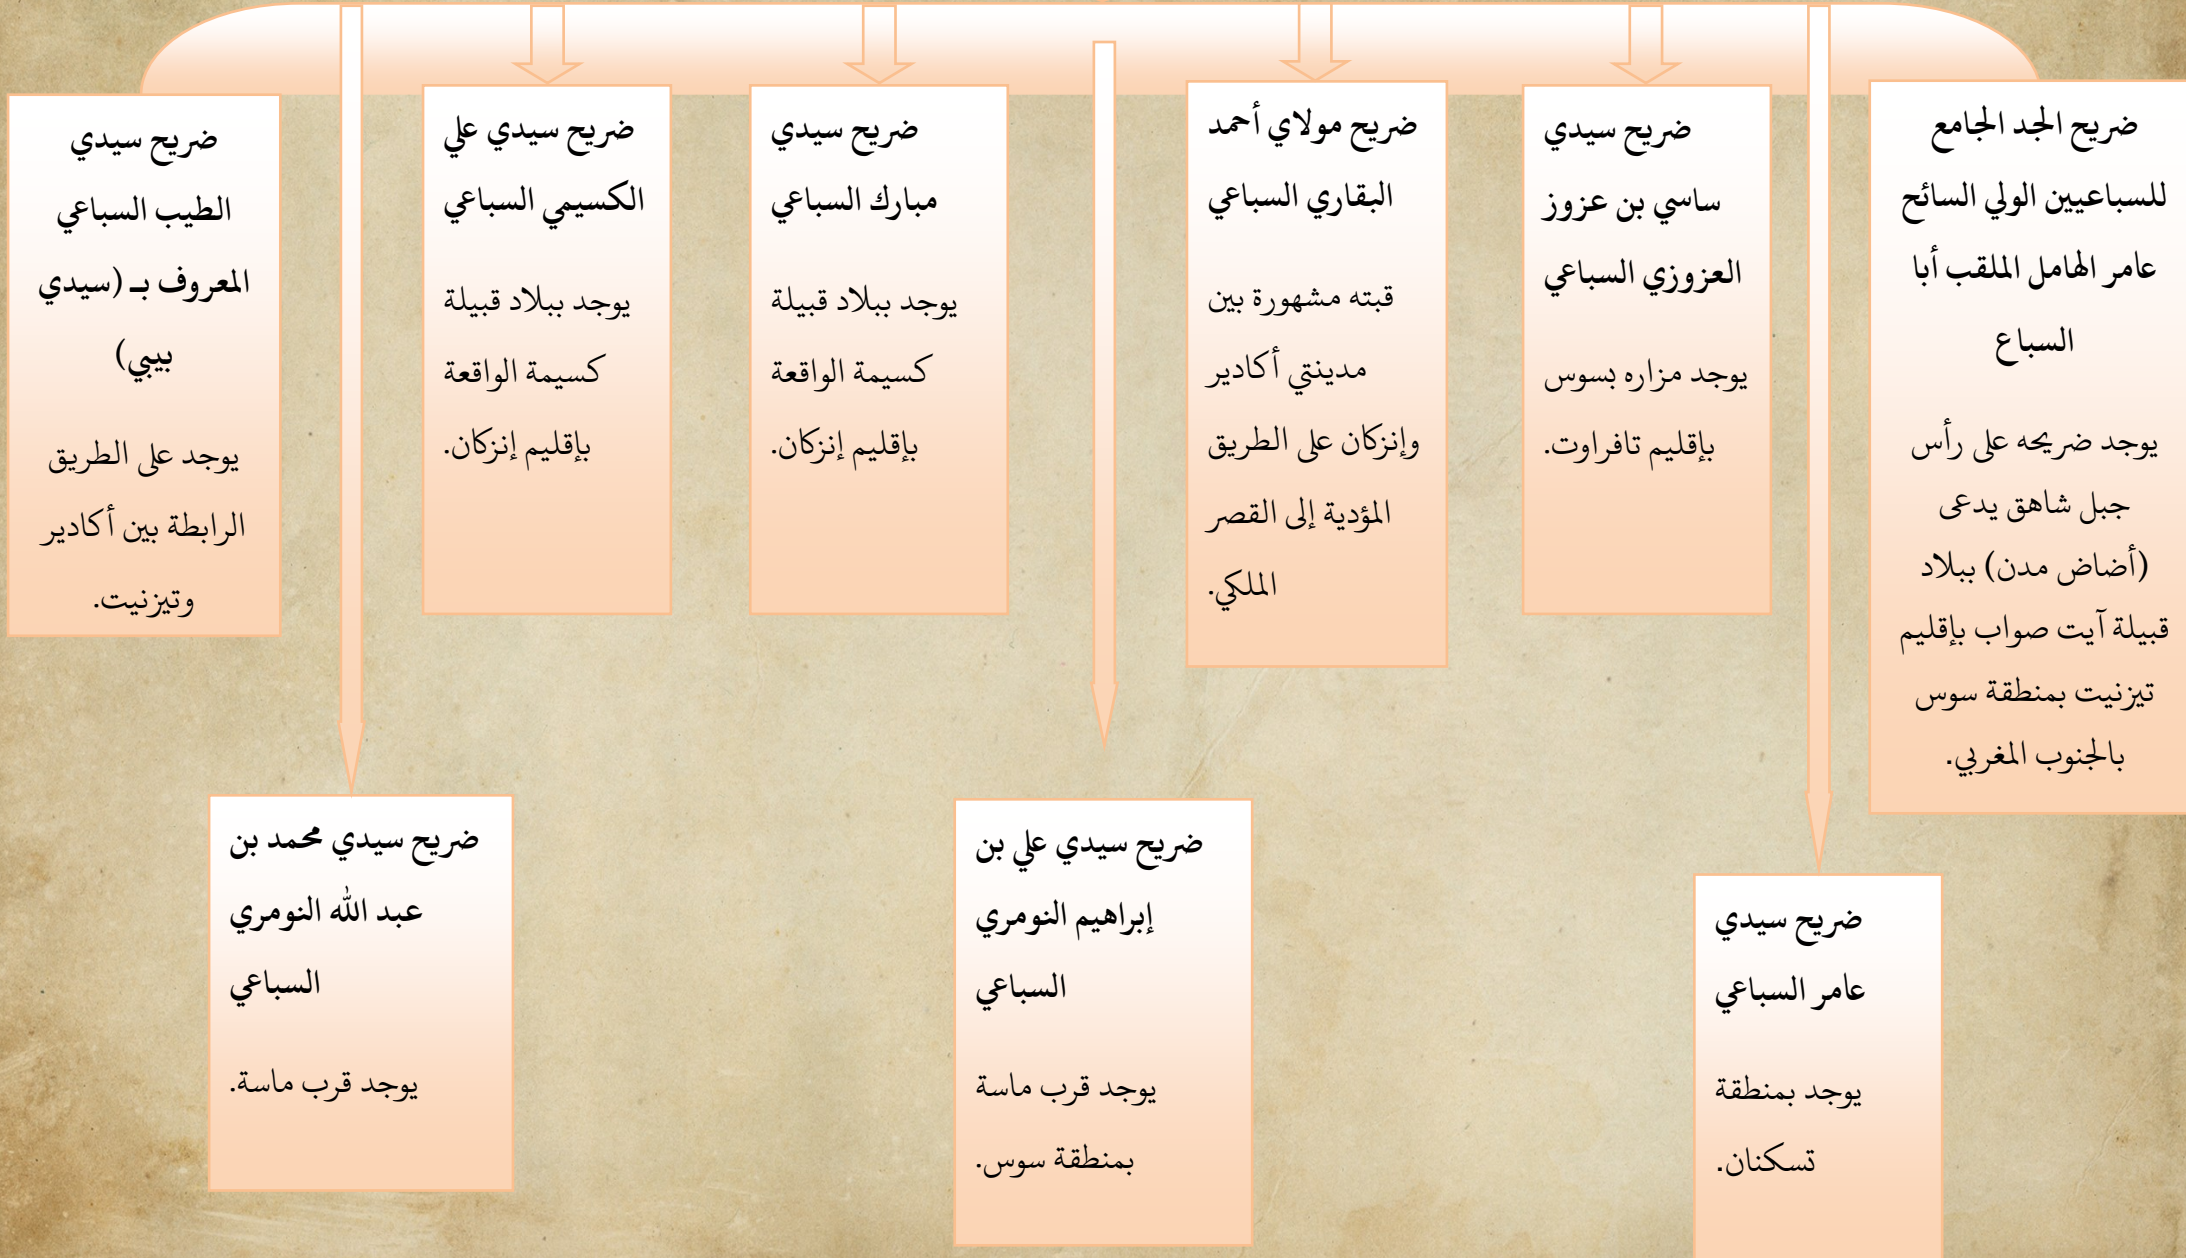 ضريح الجد الجامع
للسباعيين الولي السائح
عامر الهامل الملقب أبا
السباع
يوجد ضريحه على رأس
جبل شاهق يدعى
(أضاض مدن) ببلاد
قبيلة آيت صواب بإقليم
تيزنيت بمنطقة سوس
بالجنوب المغربي.
ضريح سيدي
ساسي بن عزوز
العزوزي السباعي
يوجد مزاره بسوس
بإقليم تافراوت.
ضريح مولاي أحمد
البقاري السباعي
قبته مشهورة بين
مدينتي أكادير
وإنزكان على الطريق
المؤدية إلى القصر
الملكي.
ضريح سيدي
مبارك السباعي
يوجد ببلاد قبيلة
كسيمة الواقعة
بإقليم إنزكان.
ضريح سيدي علي
الكسيمي السباعي
يوجد ببلاد قبيلة
كسيمة الواقعة
بإقليم إنزكان.
ضريح سيدي
الطيب السباعي
المعروف بـ (سيدي
بيبي)
يوجد على الطريق
الرابطة بين أكادير
وتيزنيت.
ضريح سيدي
عامر السباعي
يوجد بمنطقة
تسكنان.
ضريح سيدي علي بن
إبراهيم النومري
السباعي
يوجد قرب ماسة
بمنطقة سوس.
ضريح سيدي محمد بن
عبد الله النومري
السباعي
يوجد قرب ماسة.